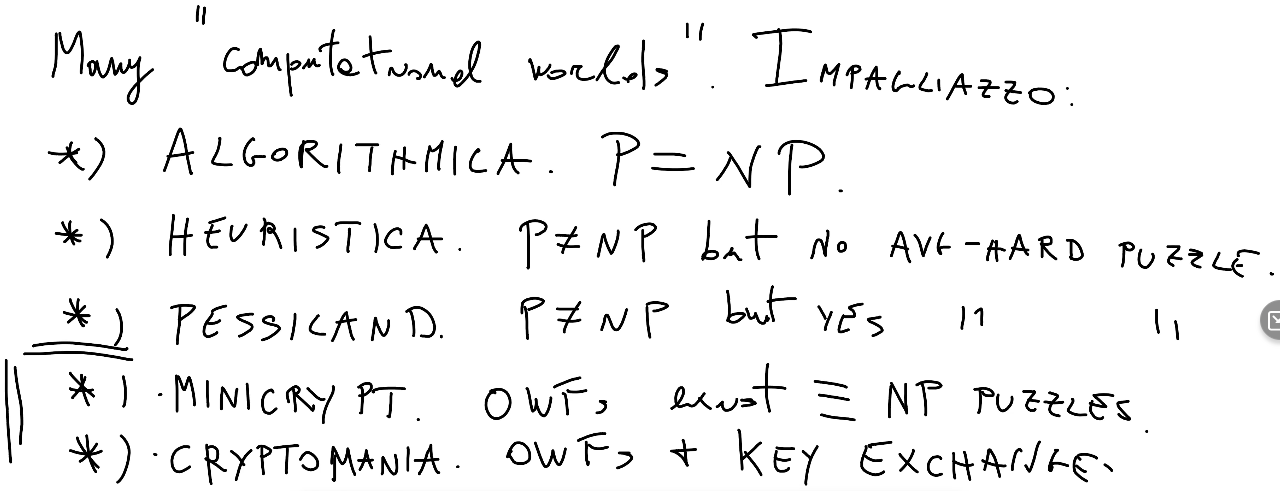 Many "computational worlds". IMPAGLIAZZO:
*) ALGORITHMICA. P = NP.
*) HEURISTICA. P ≠ NP but NO AVG-HARD PUZZLE.
*) PESSILAND. P ≠ NP but YES " "
*) . MINICRYPT. OWFs exist ≡ NP PUZZLES.
*) . CRYPTOMANIA. OWFs + KEY EXCHANGE.